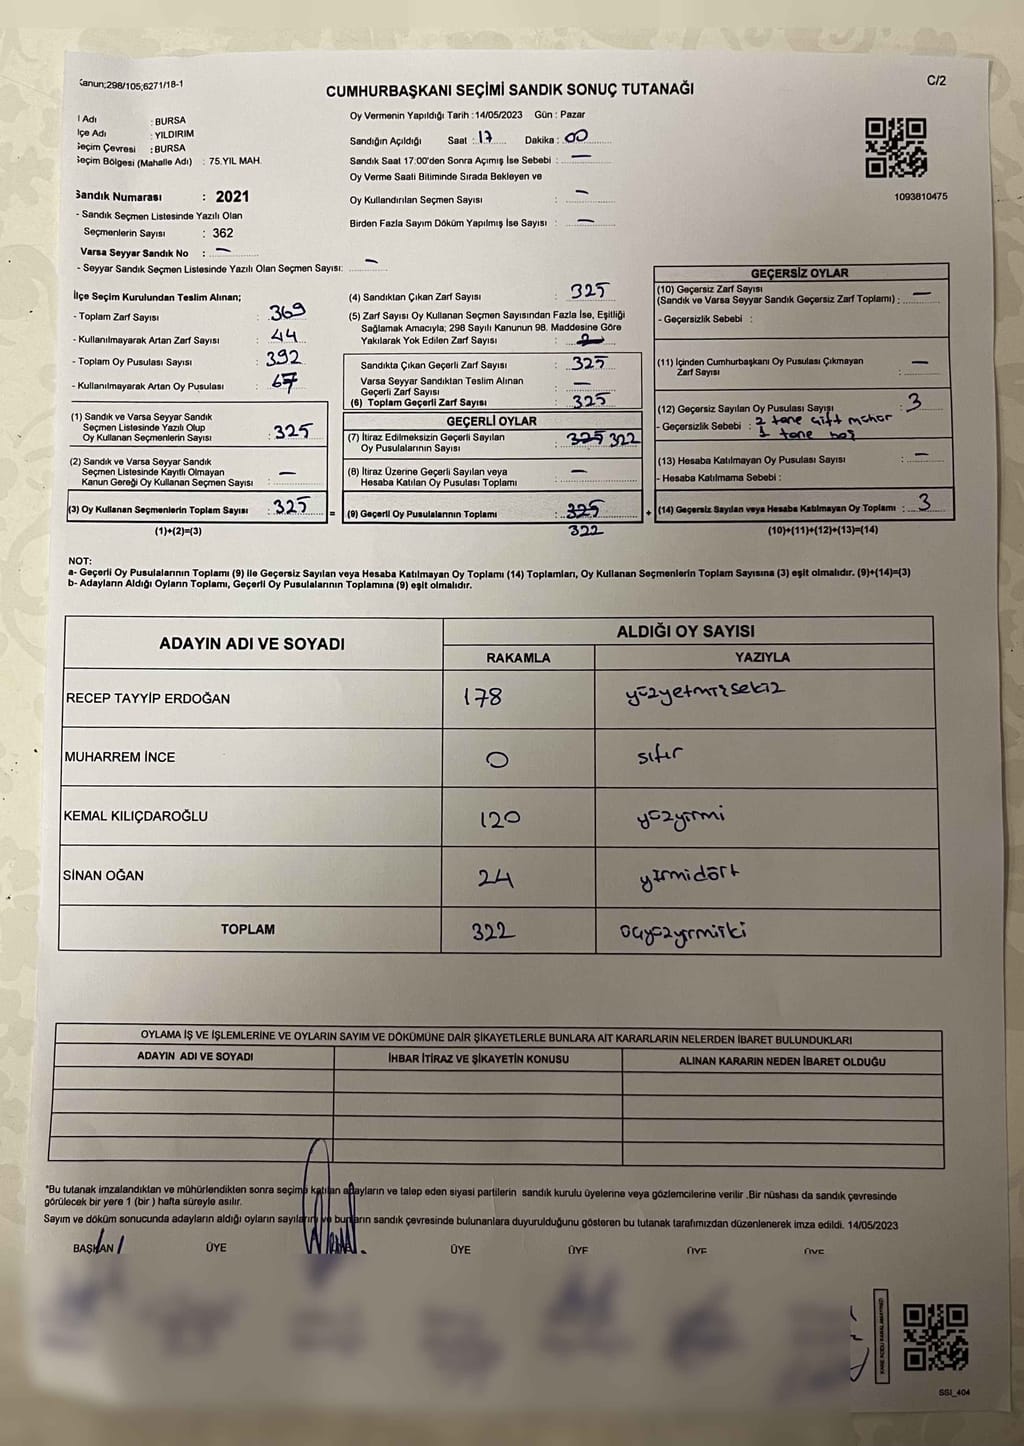 Kanun;298/105;6271/18-1
C/2
CUMHURBAŞKANI SEÇİMİ SANDIK SONUÇ TUTANAĞI
l Adı : BURSA
lçe Adı : YILDIRIM
Seçim Çevresi : BURSA
Seçim Bölgesi (Mahalle Adı) : 75.YIL MAH.
Sandık Numarası : 2021
- Sandık Seçmen Listesinde Yazılı Olan
Seçmenlerin Sayısı : 362
Varsa Seyyar Sandık No : —
- Seyyar Sandık Seçmen Listesinde Yazılı Olan Seçmen Sayısı: —
Oy Vermenin Yapıldığı Tarih : 14/05/2023 Gün : Pazar
Sandığın Açıldığı Saat : 17 Dakika : 00
Sandık Saat 17:00'den Sonra Açımış İse Sebebi : —
Oy Verme Saati Bitiminde Sırada Bekleyen ve
Oy Kullandırılan Seçmen Sayısı : —
Birden Fazla Sayım Döküm Yapılmış İse Sayısı : —
1093810475
İlçe Seçim Kurulundan Teslim Alınan;
- Toplam Zarf Sayısı : 369
- Kullanılmayarak Artan Zarf Sayısı : 44
- Toplam Oy Pusulası Sayısı : 392
- Kullanılmayarak Artan Oy Pusulası : 67
(1) Sandık ve Varsa Seyyar Sandık
Seçmen Listesinde Yazılı Olup
Oy Kullanan Seçmenlerin Sayısı : 325
(2) Sandık ve Varsa Seyyar Sandık
Seçmen Listesinde Kayıtlı Olmayan
Kanun Gereği Oy Kullanan Seçmen Sayısı : —
(3) Oy Kullanan Seçmenlerin Toplam Sayısı : 325
(1)+(2)=(3)
(4) Sandıktan Çıkan Zarf Sayısı : 325
(5) Zarf Sayısı Oy Kullanan Seçmen Sayısından Fazla İse, Eşitliği
Sağlamak Amacıyla; 298 Sayılı Kanunun 98. Maddesine Göre
Yakılarak Yok Edilen Zarf Sayısı :
Sandıkta Çıkan Geçerli Zarf Sayısı : 325
Varsa Seyyar Sandıktan Teslim Alınan
Geçerli Zarf Sayısı : —
(6) Toplam Geçerli Zarf Sayısı : 325
GEÇERLİ OYLAR
(7) İtiraz Edilmeksizin Geçerli Sayılan
Oy Pusulalarının Sayısı : 325 322
(8) İtiraz Üzerine Geçerli Sayılan veya
Hesaba Katılan Oy Pusulası Toplamı : —
= (9) Geçerli Oy Pusulalarının Toplamı : 325
322
GEÇERSİZ OYLAR
(10) Geçersiz Zarf Sayısı
(Sandık ve Varsa Seyyar Sandık Geçersiz Zarf Toplamı) : —
- Geçersizlik Sebebi :
(11) İçinden Cumhurbaşkanı Oy Pusulası Çıkmayan
Zarf Sayısı : —
(12) Geçersiz Sayılan Oy Pusulası Sayısı : 3
- Geçersizlik Sebebi : 2 tane çift mühür
1 tane boş
(13) Hesaba Katılmayan Oy Pusulası Sayısı : —
- Hesaba Katılmama Sebebi :
+ (14) Geçersiz Sayılan veya Hesaba Katılmayan Oy Toplamı : 3
(10)+(11)+(12)+(13)=(14)
NOT:
a- Geçerli Oy Pusulalarının Toplamı (9) ile Geçersiz Sayılan veya Hesaba Katılmayan Oy Toplamı (14) Toplamları, Oy Kullanan Seçmenlerin Toplam Sayısına (3) eşit olmalıdır. (9)+(14)=(3)
b- Adayların Aldığı Oyların Toplamı, Geçerli Oy Pusulalarının Toplamına (9) eşit olmalıdır.
ADAYIN ADI VE SOYADI
ALDIĞI OY SAYISI
RAKAMLA YAZIYLA
RECEP TAYYİP ERDOĞAN 178 yüzyetmişsekiz
MUHARREM İNCE 0 sıfır
KEMAL KILIÇDAROĞLU 120 yüzyirmi
SİNAN OĞAN 24 yirmidört
TOPLAM 322 üçyüzyirmiiki
OYLAMA İŞ VE İŞLEMLERİNE VE OYLARIN SAYIM VE DÖKÜMÜNE DAİR ŞİKAYETLERLE BUNLARA AİT KARARLARIN NELERDEN İBARET BULUNDUKLARI
ADAYIN ADI VE SOYADI İHBAR İTİRAZ VE ŞİKAYETİN KONUSU ALINAN KARARIN NEDEN İBARET OLDUĞU
*Bu tutanak imzalandıktan ve mühürlendikten sonra seçime katılan adayların ve talep eden siyasi partilerin sandık kurulu üyelerine veya gözlemcilerine verilir .Bir nüshası da sandık çevresinde
görülecek bir yere 1 (bir ) hafta süreyle asılır.
Sayım ve döküm sonucunda adayların aldığı oyların sayılarını ve bunların sandık çevresinde bulunanlara duyurulduğunu gösteren bu tutanak tarafımızdan düzenlenerek imza edildi. 14/05/2023
BAŞKAN ÜYE ÜYE ÜYE ÜYE ÜYE
SSI_404